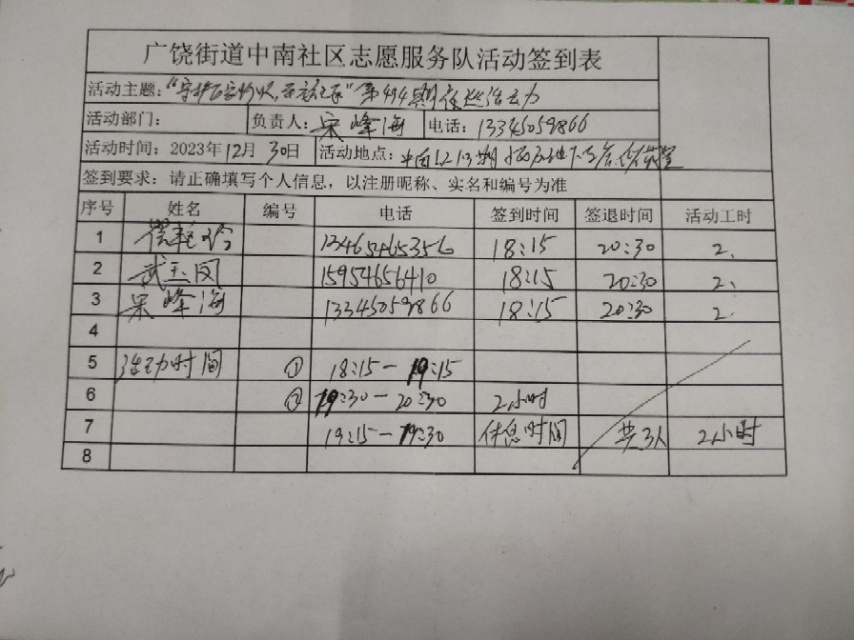 广饶街道中南社区志愿服务队活动签到表
活动主题：“守护 ”第494期夜巡活动
活动部门： 负责人：宋峰海 电话：13345059866
活动时间：2023年12月30日 活动地点：
签到要求：请正确填写个人信息，以注册昵称、实名和编号为准
序号 姓名 编号 电话 签到时间 签退时间 活动工时
1 18:15 20:30 2.
2 武玉凤 15954656410 18:15 20:30 2.
3 宋峰海 13345059866 18:15 20:30 2.
4
5 活动时间 ① 18:15-19:15
6 ② 19:30-20:30 2小时
7 19:15-19:30 休息时间 共3人 2小时
8